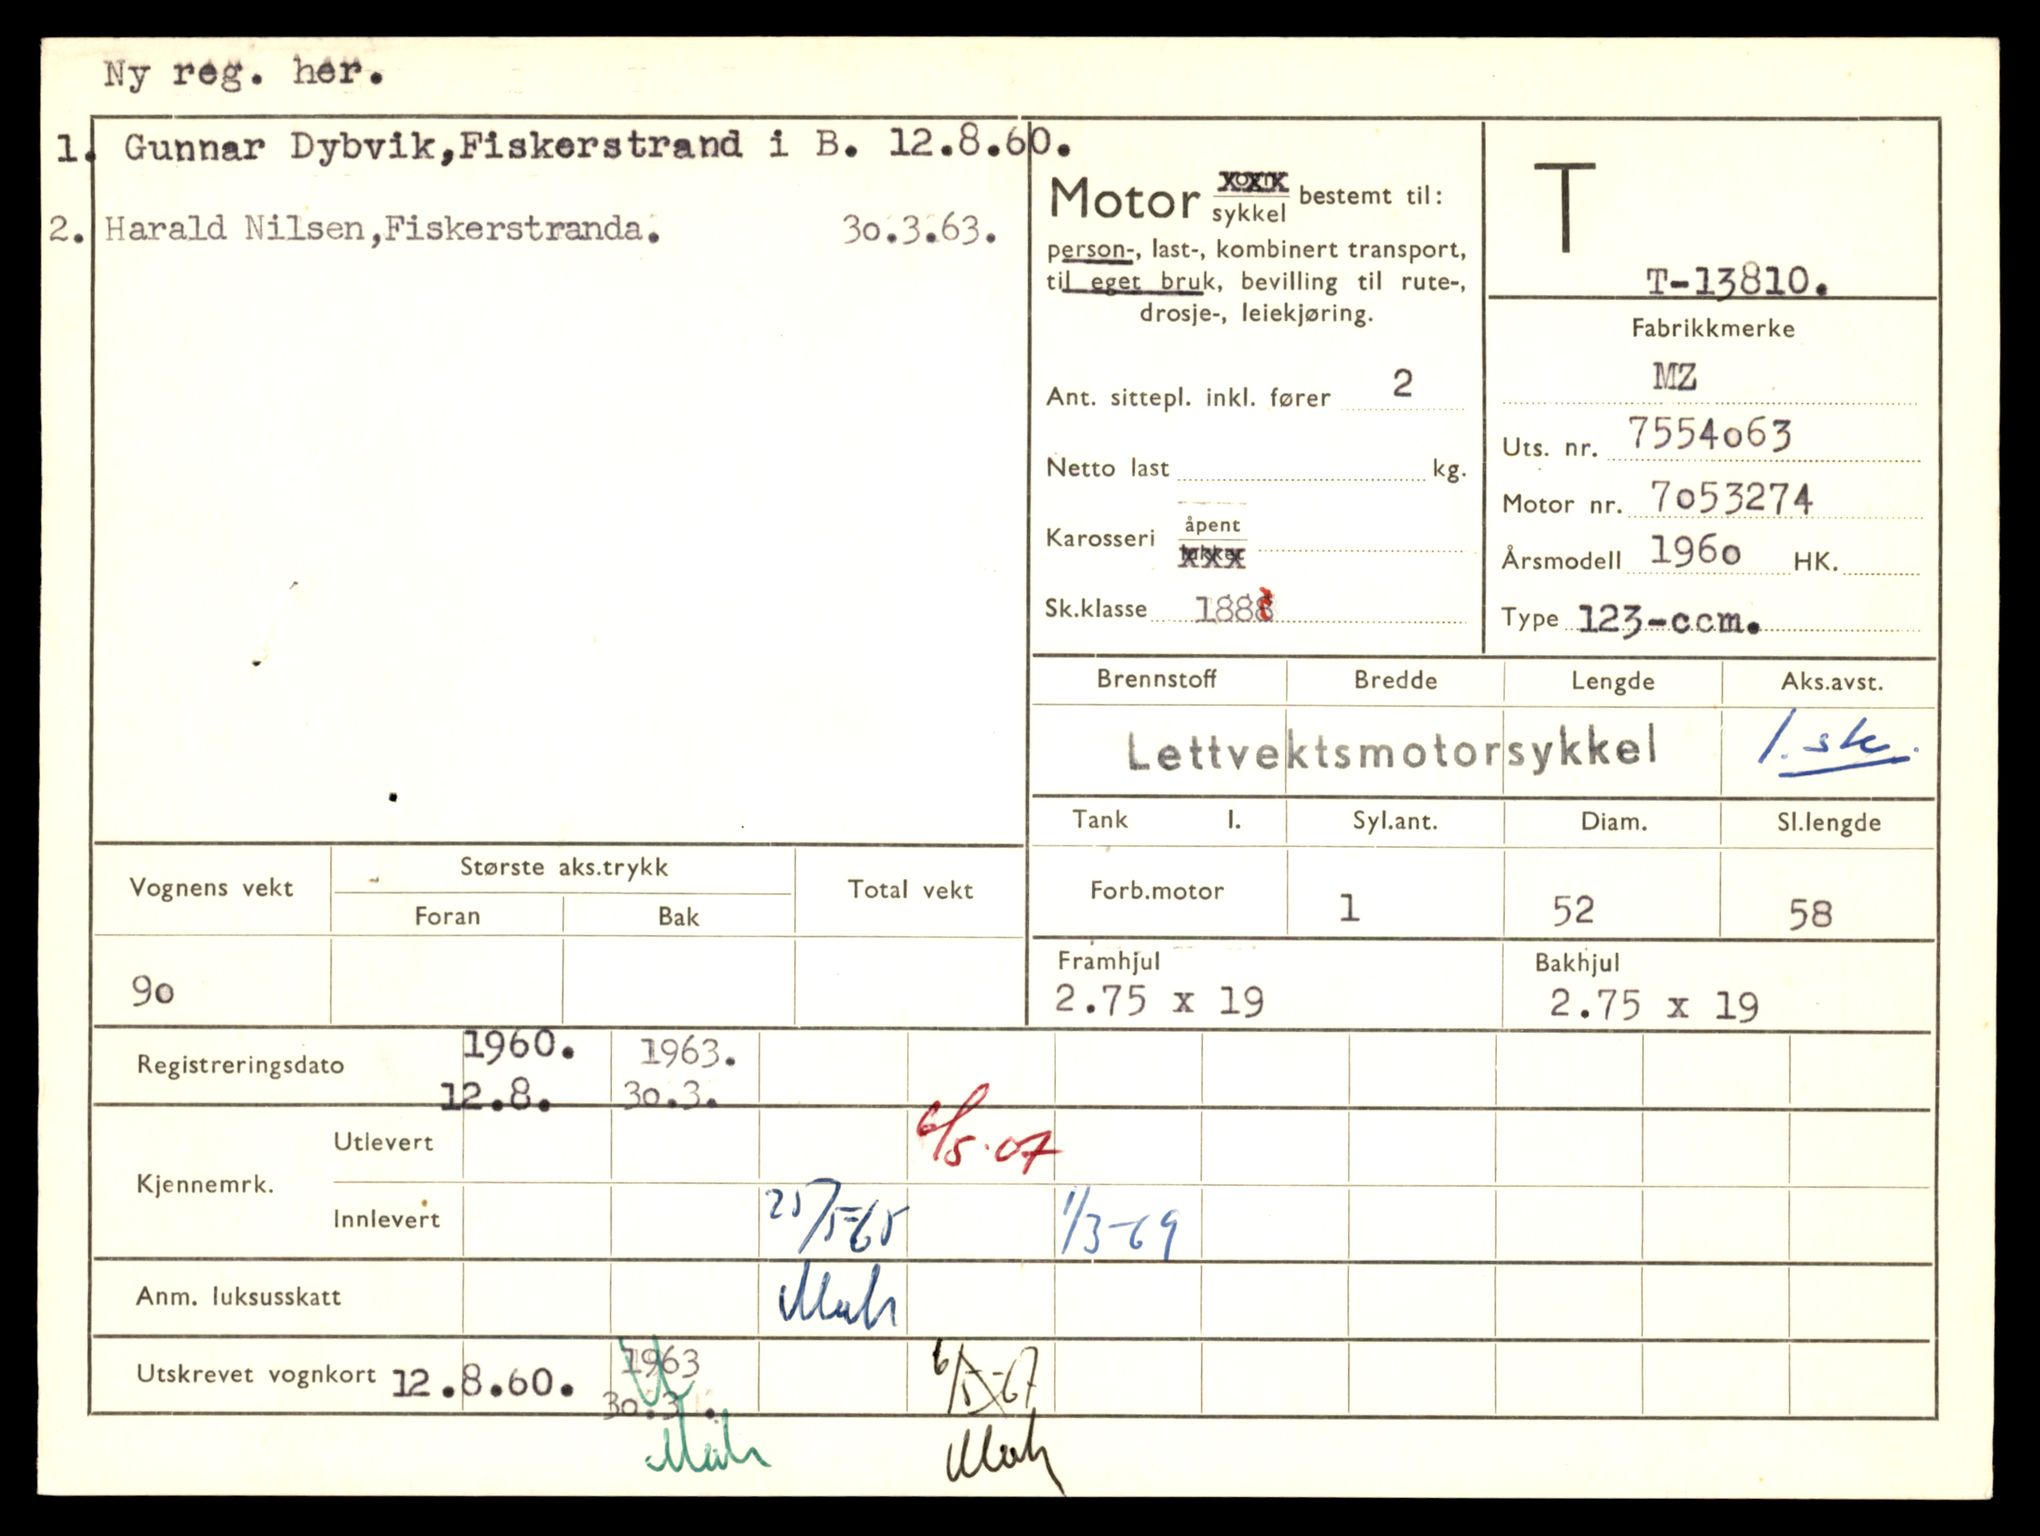 Ny reg. her.
1. Gunnar Dybvik,Fiskerstrand i B. 12.8.60.
2. Harald Nilsen,Fiskerstranda. 3o.3.63.
Motor sykkel bestemt til:
person-, last-, kombinert transport,
til eget bruk, bevilling til rute-,
drosje-, leiekjøring.
Ant. sittepl. inkl. fører 2
Netto last kg.
Karosseri åpent
lukket
Sk.klasse 188
T
T-13810.
Fabrikkmerke
MZ
Uts. nr. 7554o63
Motor nr. 7o53274
Årsmodell 196o HK.
Type 123-ccm.
Brennstoff Bredde Lengde Aks.avst.
Lettvektsmotorsykkel 1. sk.
Tank l. Syl.ant. Diam. Sl.lengde
Forb.motor 1 52 58
Framhjul Bakhjul
2.75 x 19 2.75 x 19
Vognens vekt Største aks.trykk Total vekt
Foran Bak
9o
Registreringsdato 1960. 1963.
12.8. 3o.3.
Kjennemrk. Utlevert 6/5.07
Innlevert 25/5-65 1/3-69
Anm. luksusskatt
Utskrevet vognkort 12.8.60. 1963 6/5-67
3o.3.